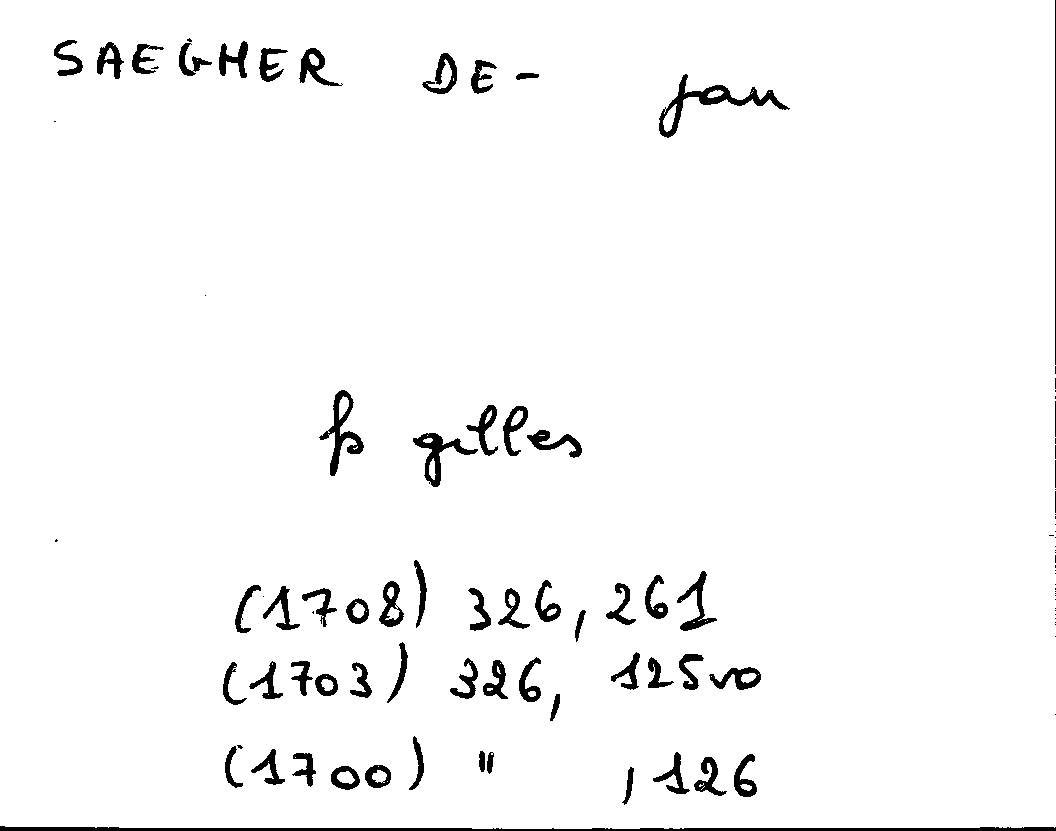 SAEGHER DE- Jan
fs gilles
(1708) 326, 261
(1703) 326, 125vo
(1700) " , 126